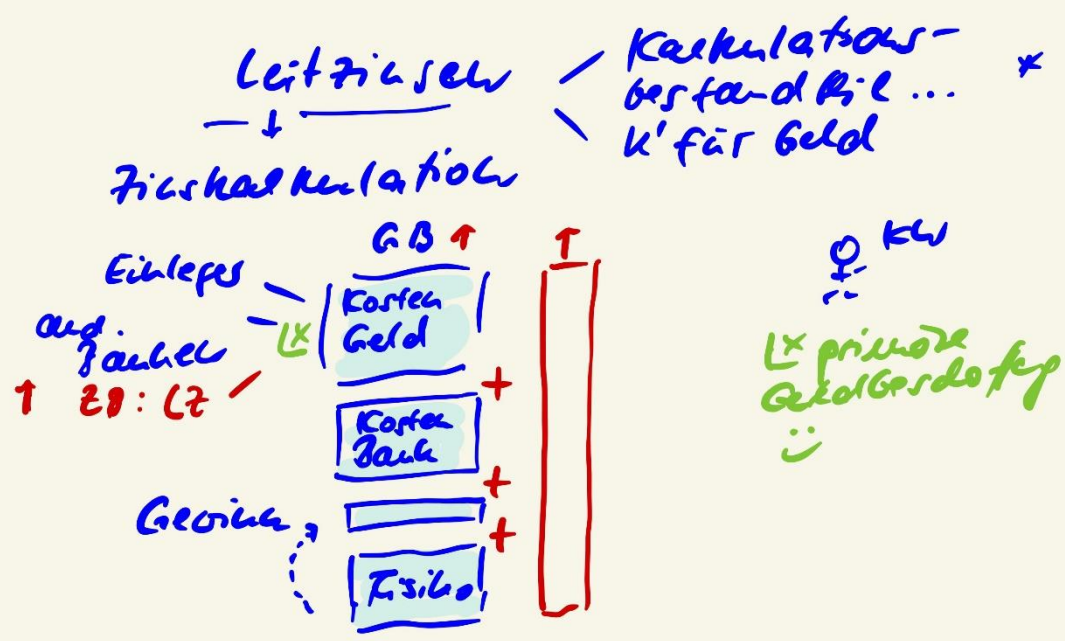 Leitzinsen
Kalkulations-
bestandteil ... *
K' für Geld
Zinskalkulation
GB ↑ ↑
Einleger
and.
Banken
↑ ZB: LZ
Kosten
Geld
+
Kosten
Bank
+
+
Gewinn
Risiko
KN
primäre
Geldbeschaffung